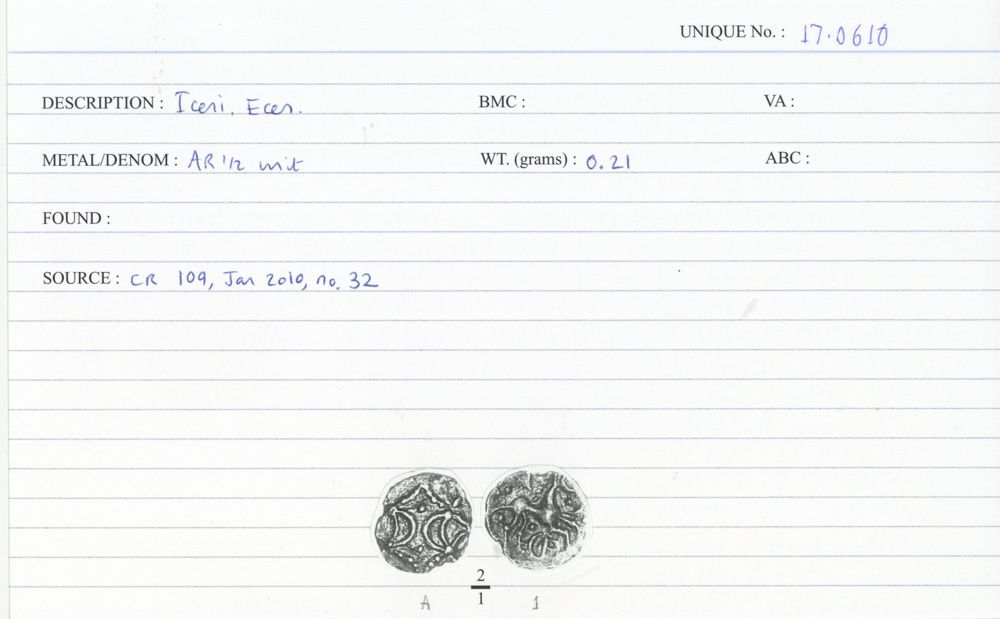 UNIQUE No. : 17.0610
DESCRIPTION : Iceni. Ecen. BMC : VA :
METAL/DENOM : AR 1/2 unit WT. (grams) : 0.21 ABC :
FOUND :
SOURCE : CR 109, Jan 2010, no. 32
2
1
A 1